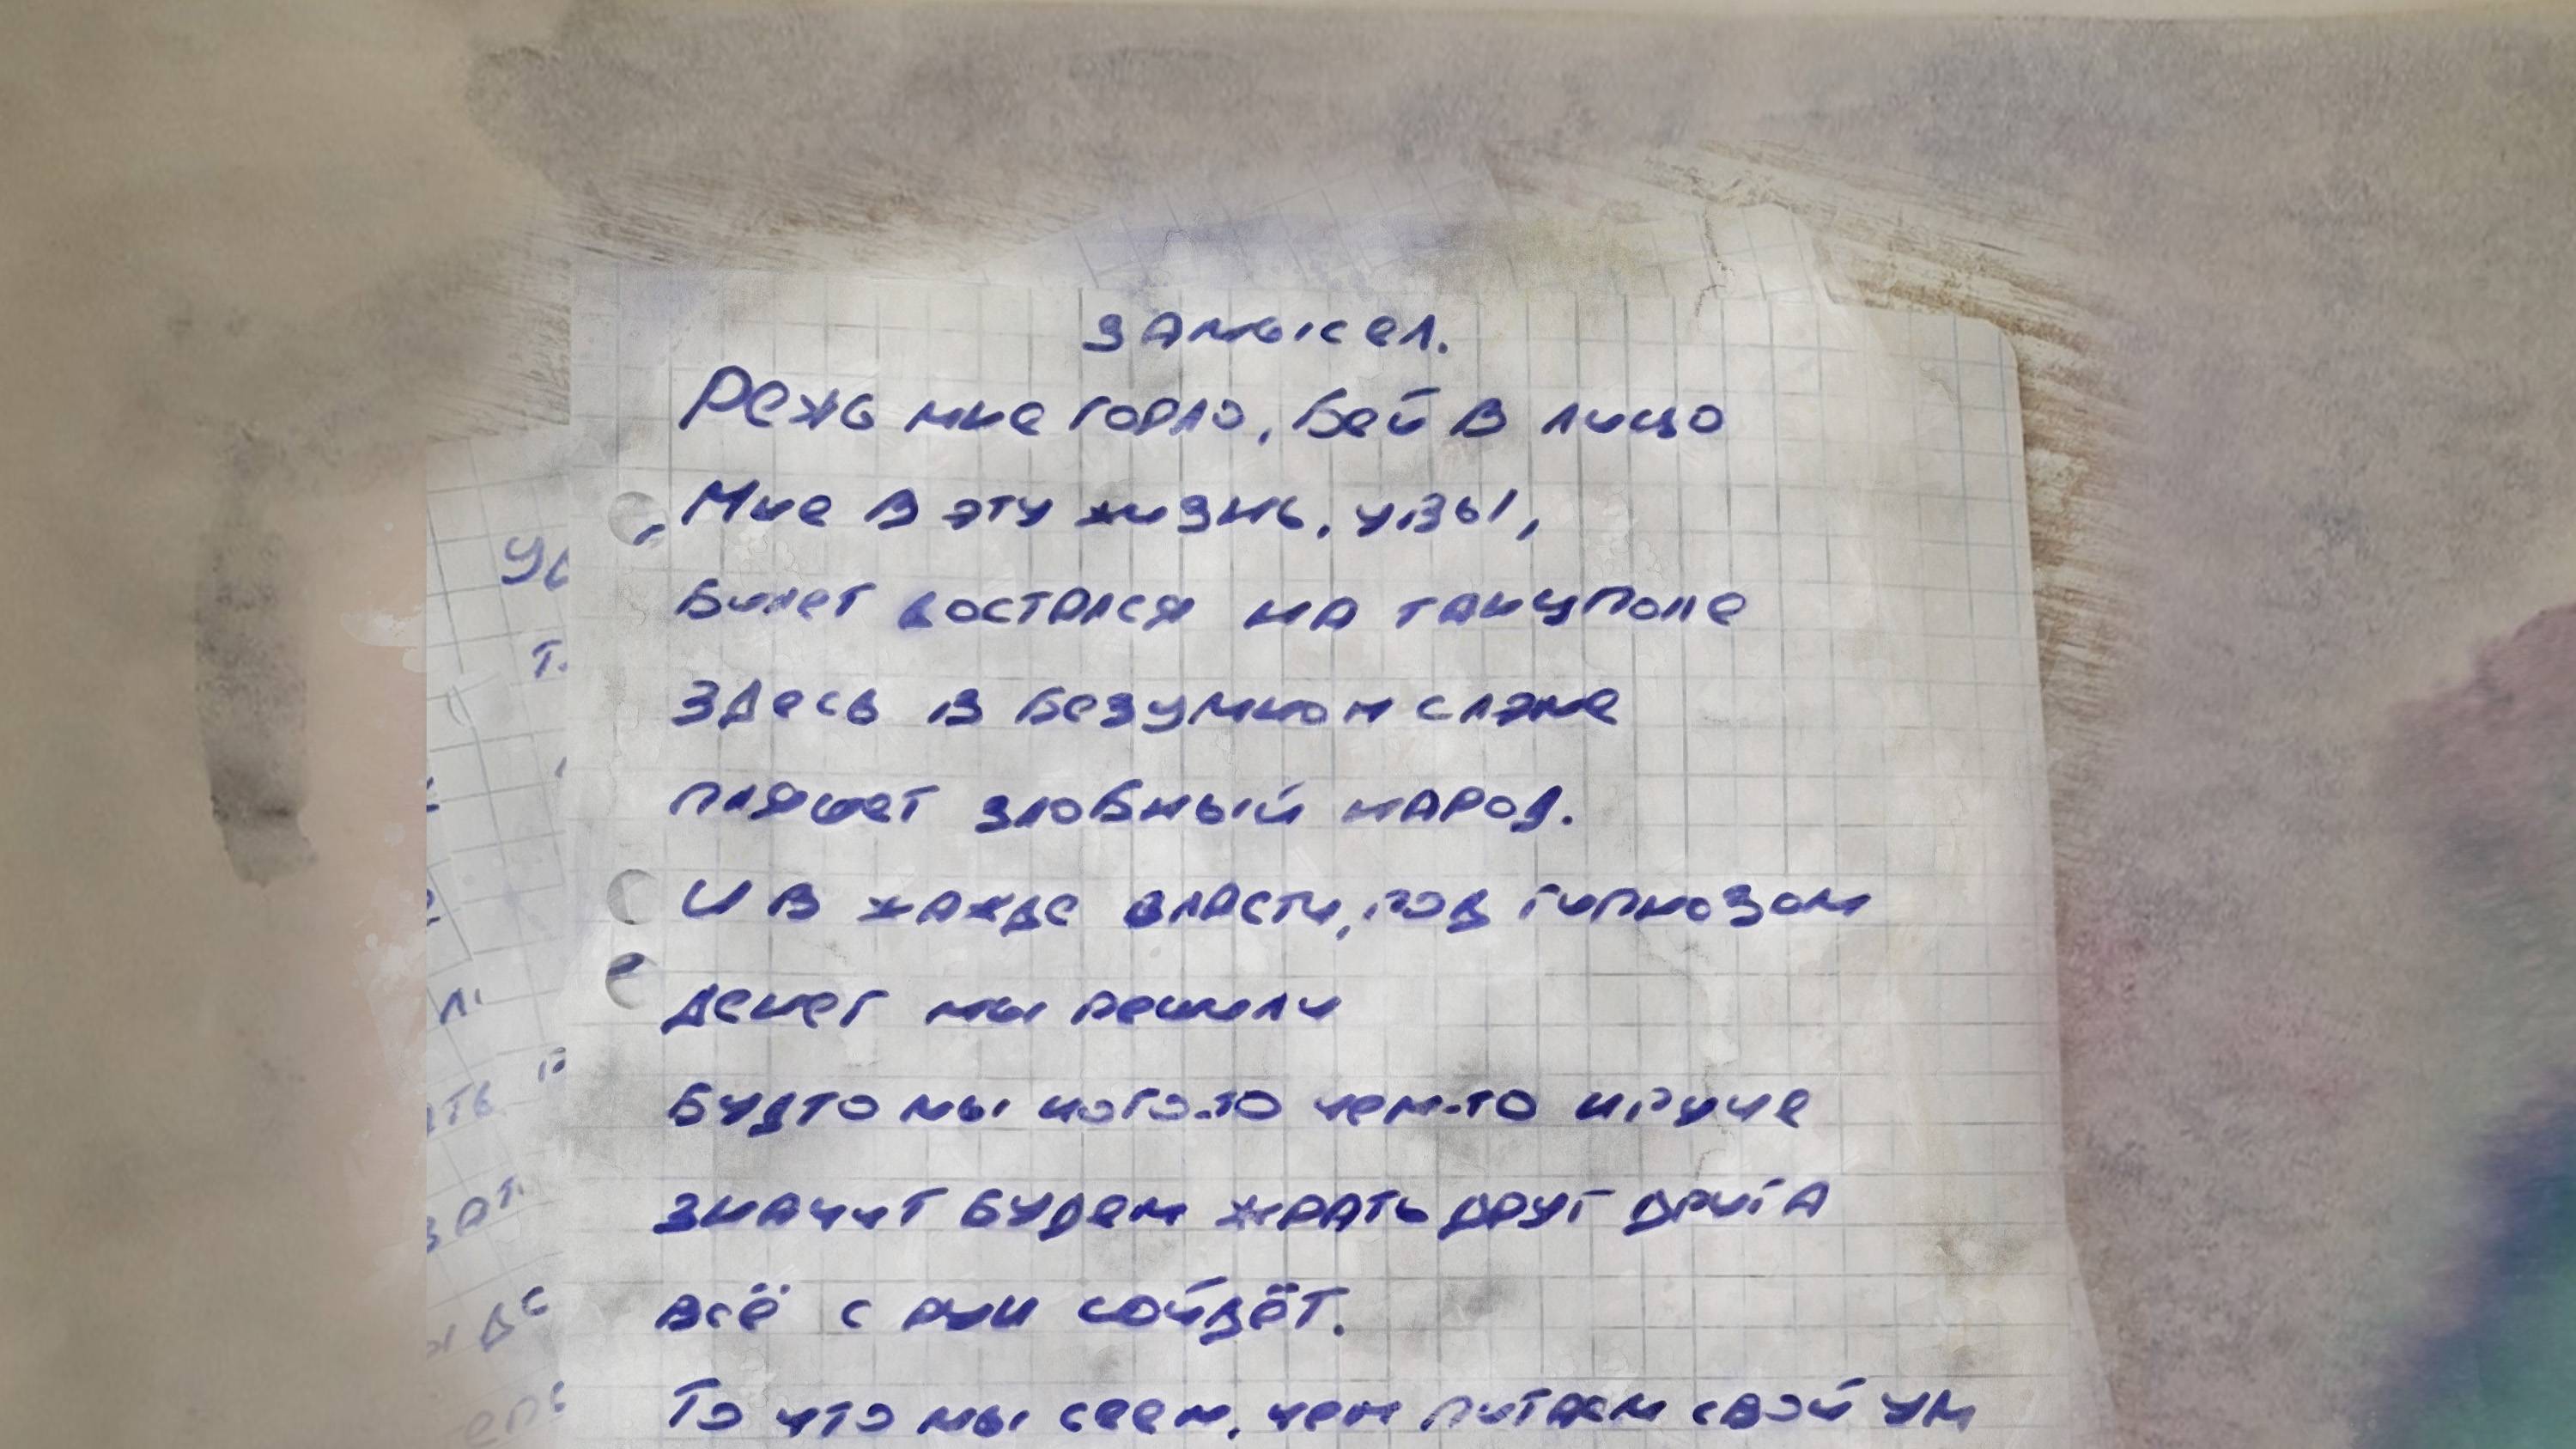 Замысел.
Режь мне горло, бей в лицо
Мне в эту жизнь, увы,
Билет достался на танцполе
Здесь в безумном слэме
пляшет злобный народ.
И в жажде власти, под гипнозом
денег мы решили
Будто мы кого-то чем-то круче
значит будем жрать друг друга
всё с рук сойдёт.
То что мы сеем, чем питаем свой ум